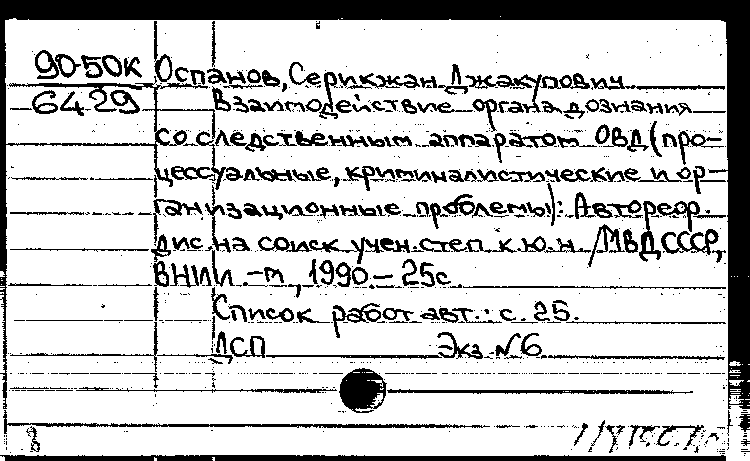 90-50К Оспанов, Серикжан Джакупович
6429 Взаимодействие органа дознания
со следственным аппаратом ОВД (про-
цессуальные, криминалистические и ор-
ганизационные проблемы): Автореф.
дис. на соиск учен. степ к. ю. н. /МВД СССР,
ВНИИ. -М, 1990. - 25с.
Список работ авт.: с. 25.
ДСП Экз. №6
8